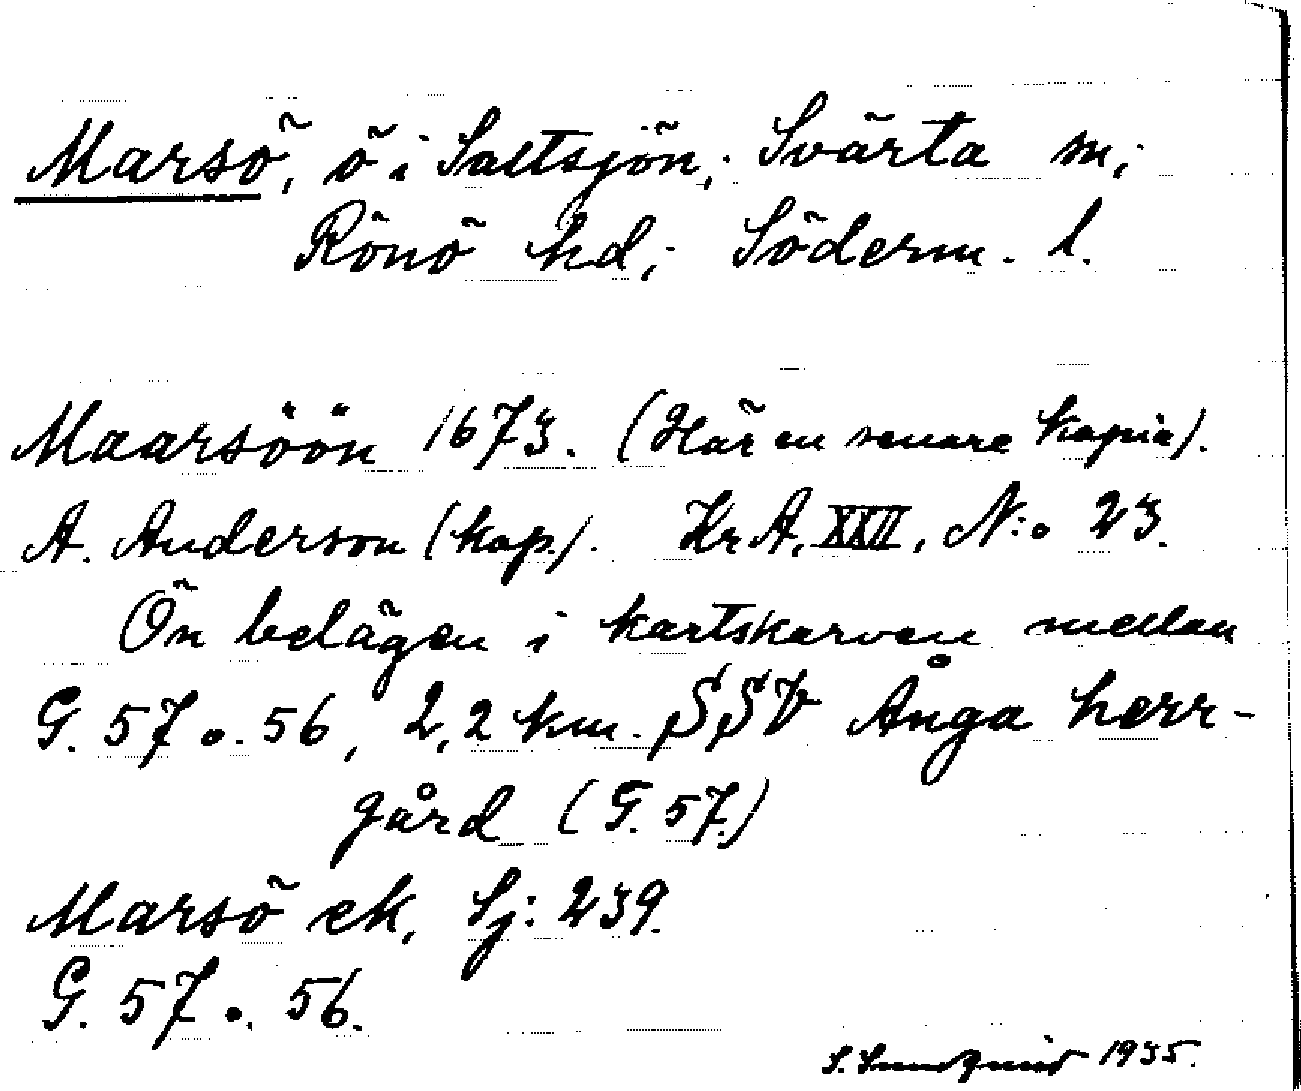 Marsö, ö i Saltsjön; Svärta sn;
Rönö hd; Söderm. l.
Maarsöön 1673. (Här en senare kopia).
A. Anderson (kop.). Kr A, XXII, N:o 23.
Ön belägen i kartskarven mellan
G. 57 o. 56, 2,2 km. SSV Ånga herr-
gård (G. 57.)
Marsö ek. Sj: 239.
G. 57 o. 56.
S. Sundquist 1935.